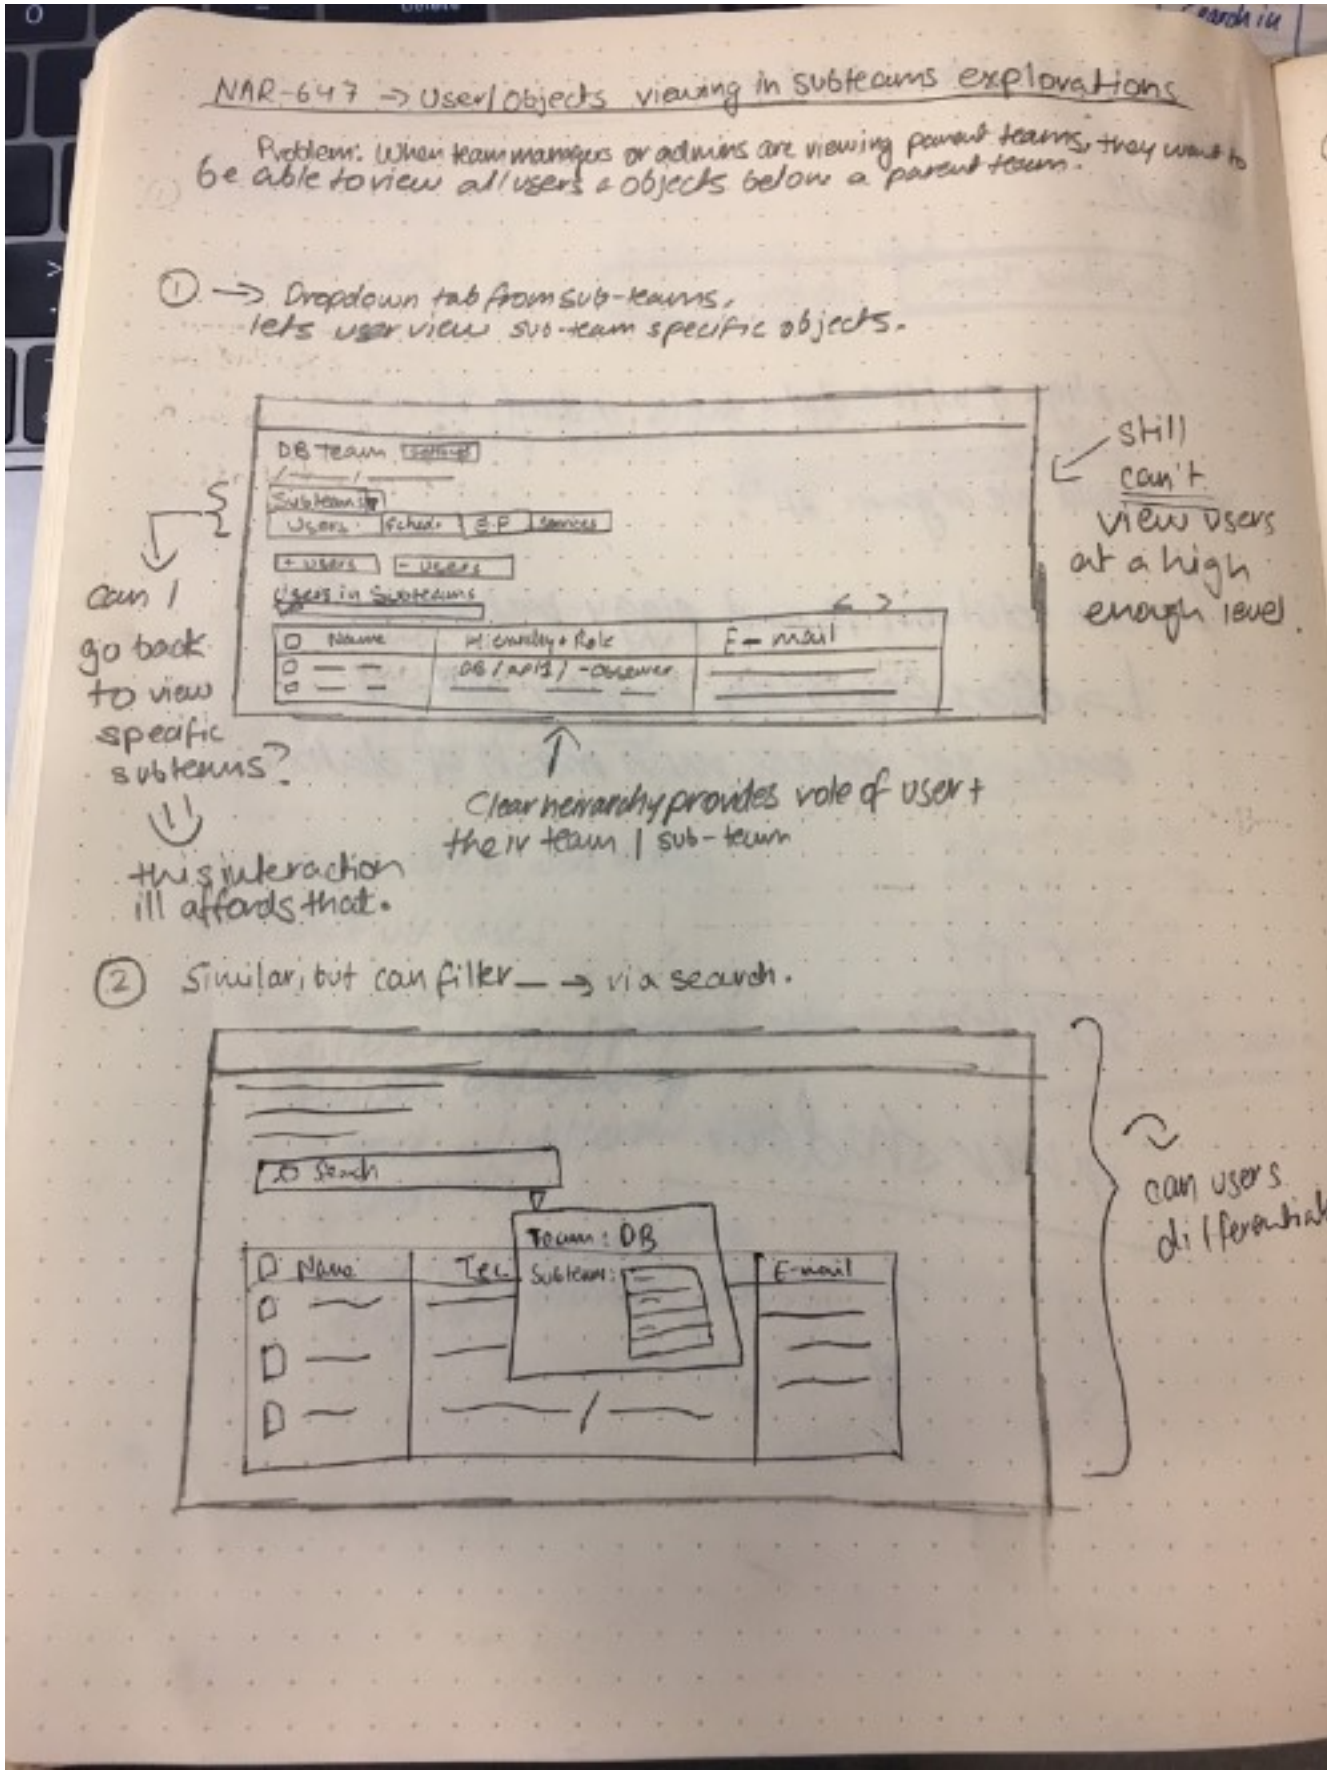 delete
earch in
NAR-647 → User/Objects viewing in subteams explorations
Problem: When team managers or admins are viewing parent teams, they want to
be able to view all users & objects below a parent team.
① → Dropdown tab from sub-teams.
lets user view sub-team specific objects.
DB Team
Subteams
Users Sched. E.P Services
+ users - users
Users in Subteams
< >
Name Hierarchy + Role E-mail
DB / api1 / - Observer
still
can't
view users
at a high
enough level.
can I
go back
to view
specific
subteams?
this interaction
ill affords that.
Clear heirarchy provides role of user +
their team / sub-team
② Similar, but can filter — → via search.
Search
Team: DB
Subteam:
Name E-mail
can users
differentiat